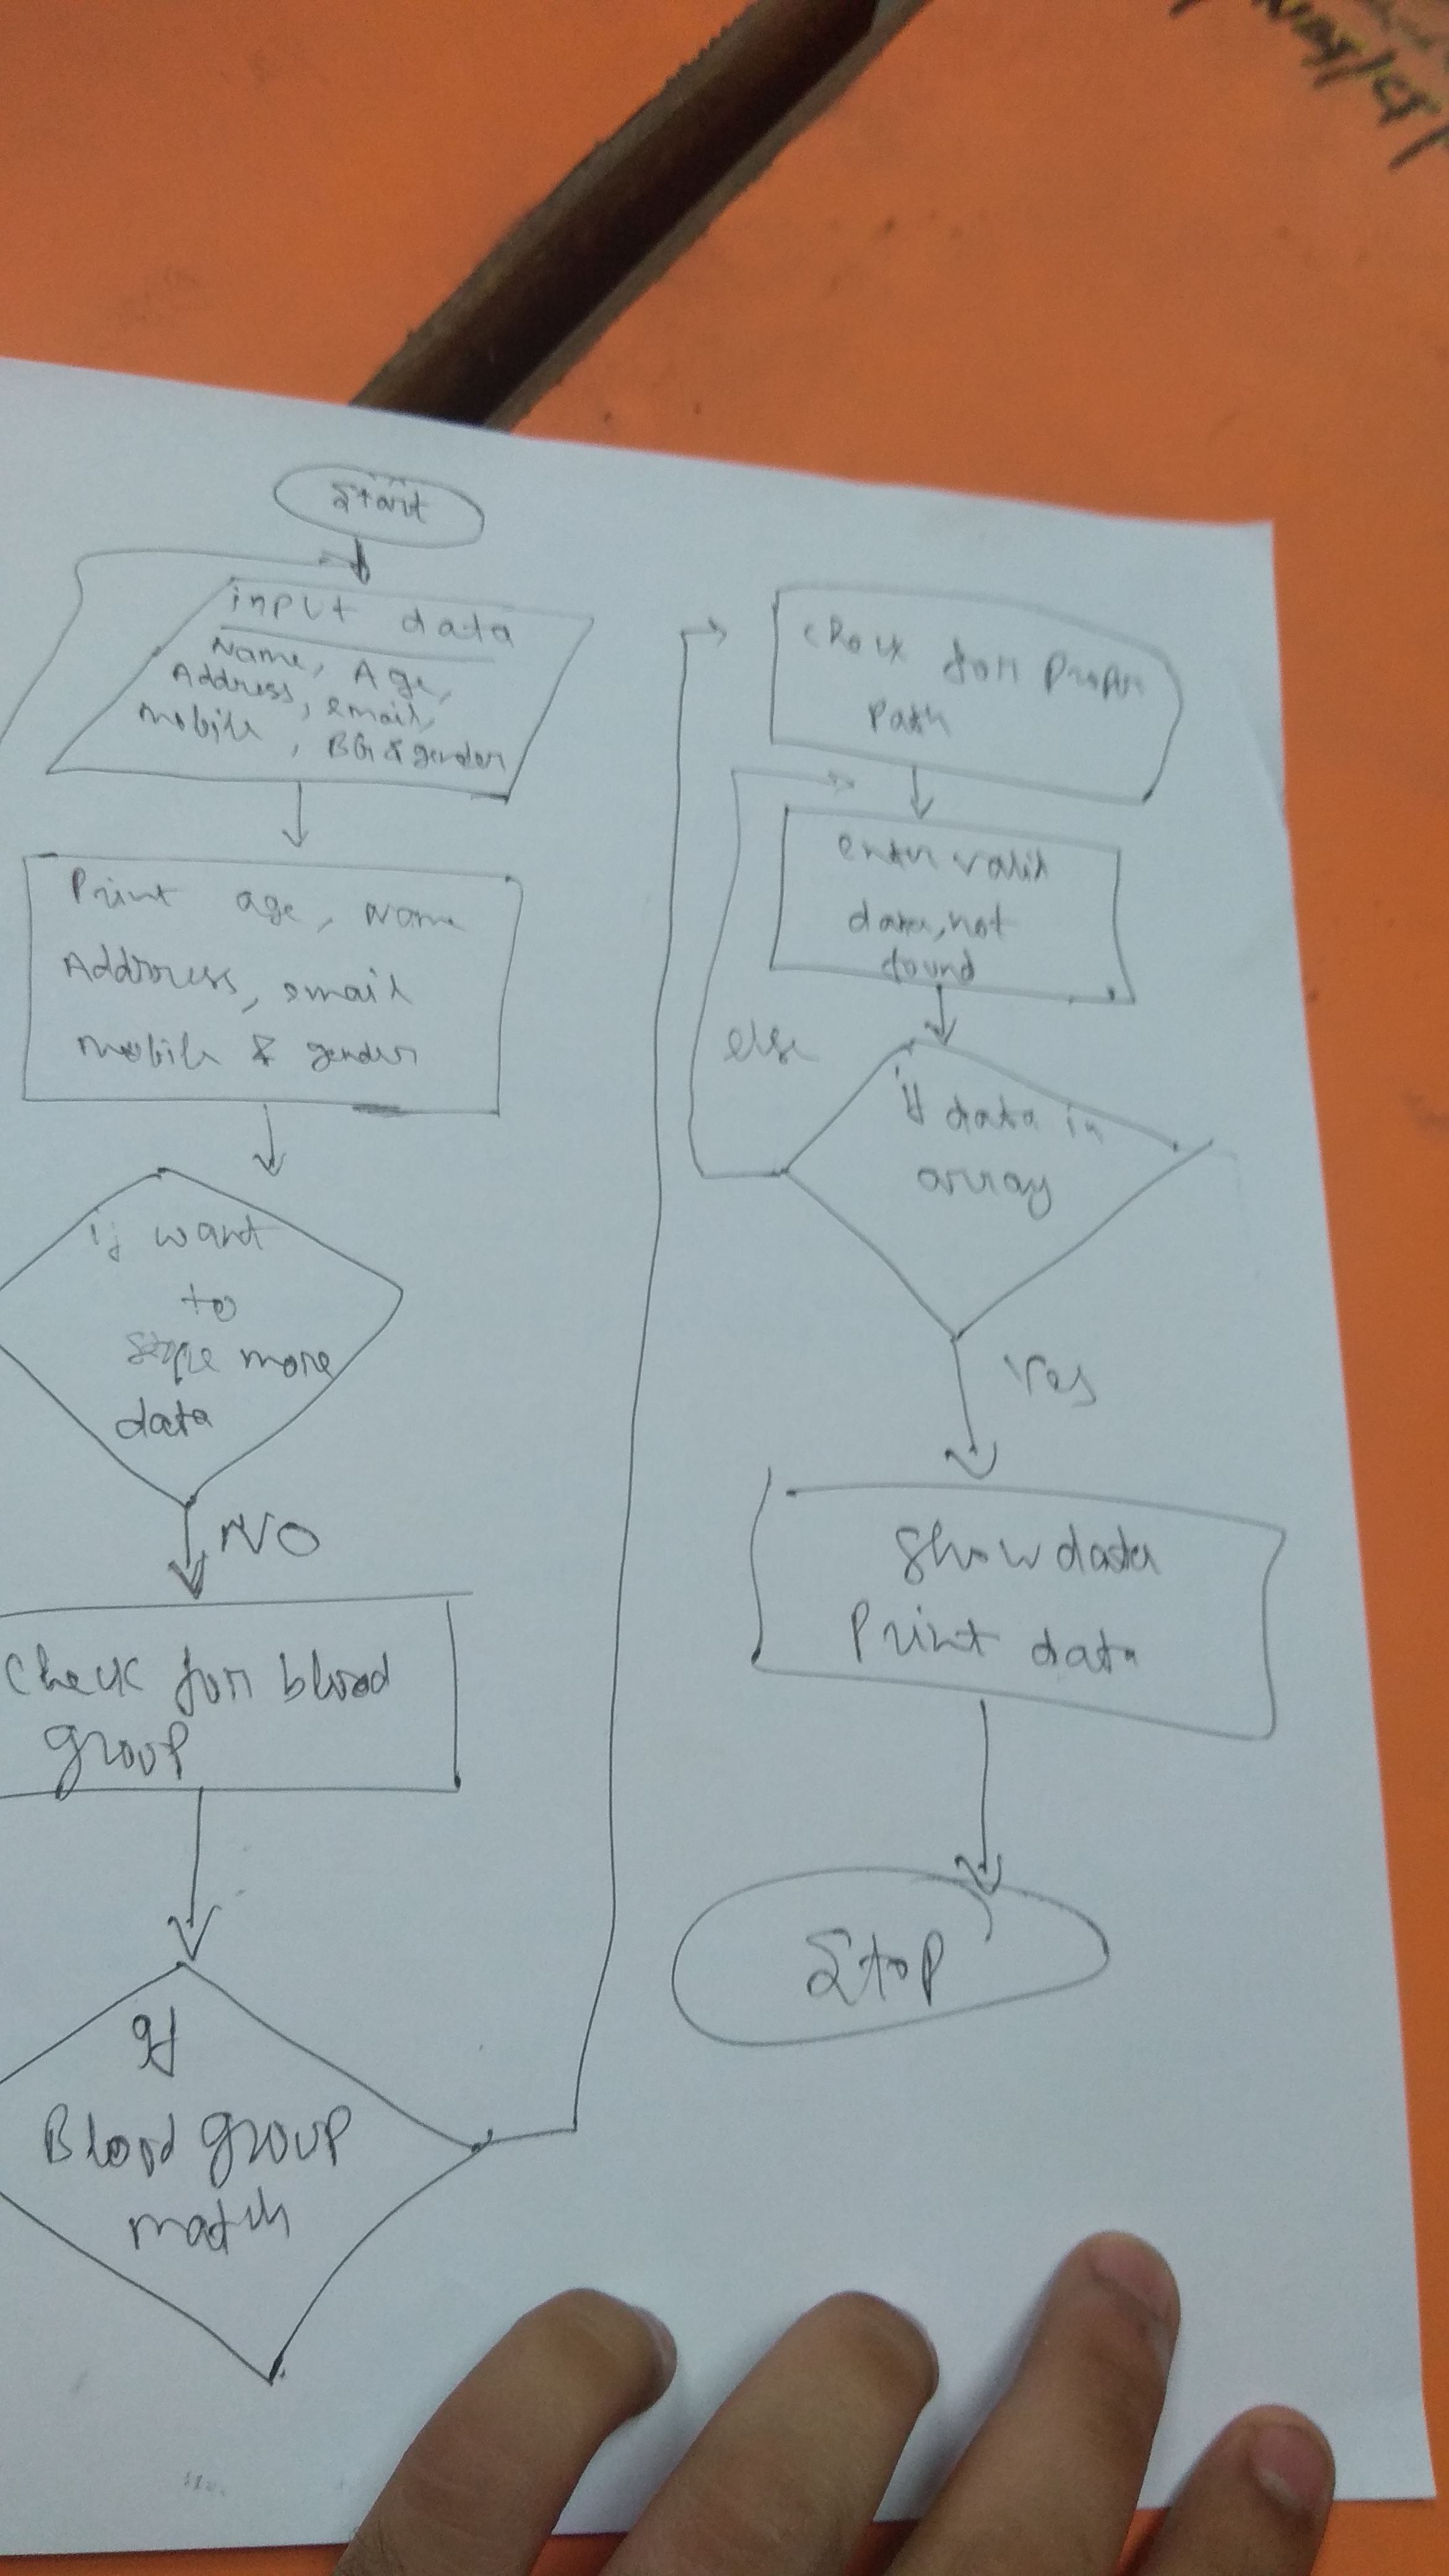 Start
input data
Name, Age,
Address, email,
mobile, BG & gender
Print age, Name
Address, email
mobile & gender
if want
to
store more
data
NO
Check for blood
group
If
Blood group
match
Check for proper
Path
enter valid
data, not
found
else
if data in
array
Yes
Show data
Print data
Stop